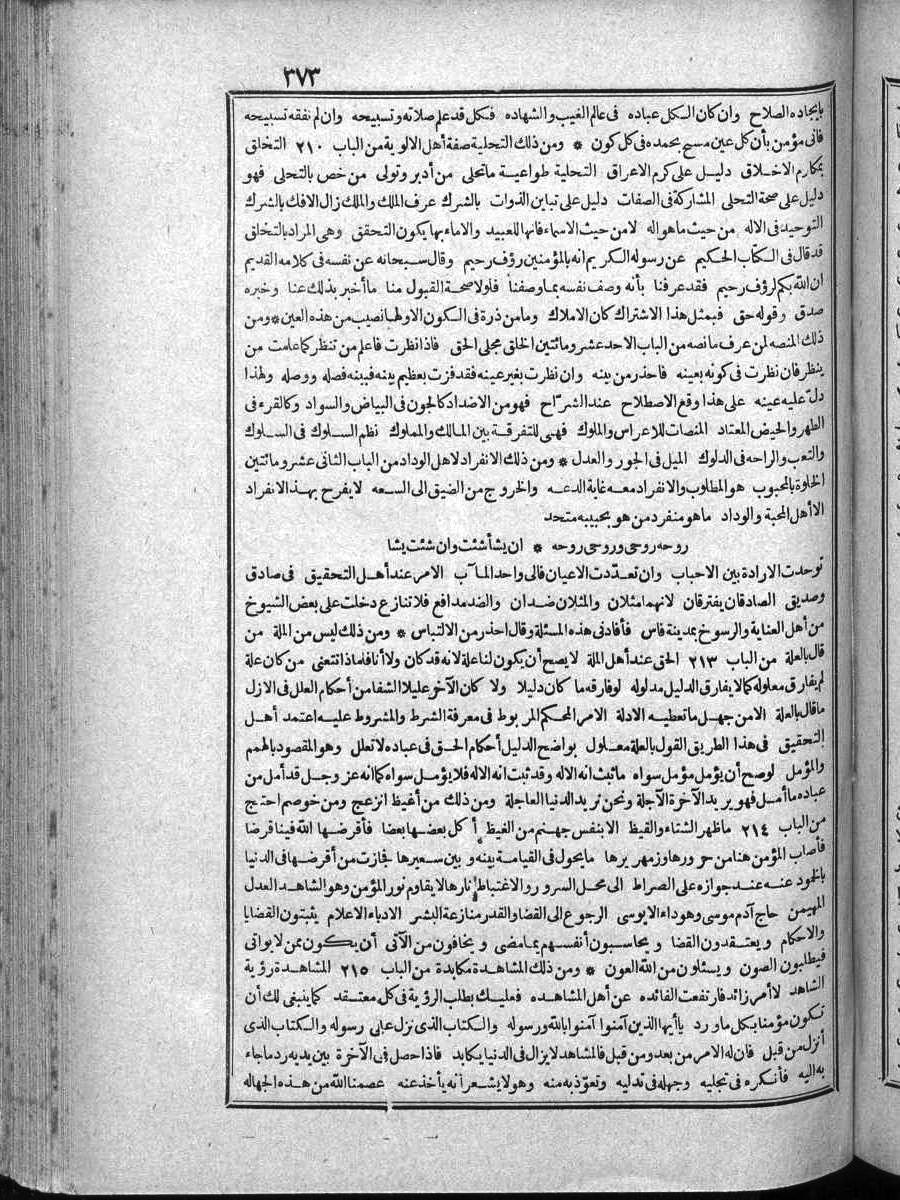 ٣٧٣
بايجاده الصلاح وان كان الكل عباده فى عالم الغيب والشهاده فكل قد علم صلاته وتسبيحه وان لم نفقه تسبيحه
فانى مؤمن بأن كل عين مسبح بحمده فى كل كون * ومن ذلك التحلية صفة أهل الالوية من الباب ٢١٠ التخلق
بمكارم الاخلاق دليل على كرم الاعراق التحلية طواعية ماتحلى من أدبر وتولى من خص بالتحلى فهو
دليل على صحة التحلى المشاركة فى الصفات دليل على تباين الذوات بالشرك عرف الملك والملك زال الافك بالشرك
التوحيد فى الاله من حيث ماهو اله لامن حيث الاسماء فانها للعبيد والاماء بها يكون التحقق وهى المراد بالتخلق
قد قال فى الكتاب الحكيم عن رسوله الكريم انه بالمؤمنين رؤف رحيم وقال سبحانه عن نفسه فى كلامه القديم
ان الله بكم لرؤف رحيم فقد عرفنا بأنه وصف نفسه بما وصفنا فلولا صحة القبول منا ما أخبر بذلك عنا وخبره
صدق وقوله حق فبمثل هذا الاشتراك كان الاملاك وما من ذرة فى الكون الاولها نصيب من هذه العين * ومن
ذلك المنصه لمن عرف مانصه من الباب الاحد عشر ومائتين الخلق مجلى الحق فاذا نظرت فاعلم من تنظر كما علمت من
ينظر فان نظرت فى كونه بعينه فاحذر من بينه وان نظرت بغير عينه فقد فزت بعظيم بينه فبينه فصله ووصله ولهذا
دل عليه عينه على هذا وقع الاصطلاح عند الشراح فهو من الاضداد كالجون فى البياض والسواد وكالقرء فى
الطهر والحيض المعتاد المنصات للاعراس والملوك فهى للتفرقة بين المالك والمملوك نظم السلوك فى السلوك
والتعب والراحه فى الدلوك الميل فى الجور والعدل * ومن ذلك الانفراد لاهل الوداد من الباب الثانى عشر ومائتين
الخلوة بالمحبوب هو المطلوب والانفراد معه غاية الدعه والخروج من الضيق الى السعه لايفرح بهذا الانفراد
الا أهل المحبة والوداد ماهو منفرد من هو بحبيبه متحد
روحه روحى وروحى روحه * ان يشأ شئت وان شئت يشا
توحدت الارادة بين الاحباب وان تعددت الاعيان فالى واحد المآب الامر عند أهل التحقيق فى صادق
وصديق الصادقان يفترقان لانهما مثلان والمثلان ضدان والضد مدافع فلا تنازع دخلت على بعض الشيوخ
من أهل العناية والرسوخ بمدينة فاس فأفادنى هذه المسئلة وقال احذر من الالتباس * ومن ذلك ليس من الملة من
قال بالعلة من الباب ٢١٣ الحق عند أهل الملة لايصح أن يكون لنا علة لانه قد كان ولا أنا فلماذا تتعنى من كان علة
لم يفارق معلوله كما لايفارق الدليل مدلوله لو فارقه ما كان دليلا ولا كان الآخر عليلا الشفا من أحكام العلل فى الازل
ماقال بالعلة الا من جهل ماتعطيه الادلة الامر المحكم المربوط فى معرفة الشرط والمشروط عليه اعتمد أهل
التحقيق فى هذا الطريق القول بالعلة معلول بواضح الدليل أحكام الحق فى عباده لا تعلل وهو المقصود بالهمم
والمؤمل لو صح أن يؤمل مؤمل سواه ماثبت انه الاله وقد ثبت انه الاله فلا يؤمل سواه كما انه عز وجل قد أمل من
عباده ما أمل فهو يريد الآخرة الآجلة ونحن نريد الدنيا العاجلة ومن ذلك من أغيظ انزعج ومن خوصم احتج
من الباب ٢١٤ ماظهر الشتاء والقيظ الا بنفس جهنم من الغيظ أكل بعضها بعضا فأقرضها الله فينا قرضا
فأصاب المؤمن هنا من حرورها وزمهريرها مايحول فى القيامة بينه وبين سعيرها فجازت من أقرضها فى الدنيا
بالخمود عنه عند جوازه على الصراط الى محل السرور والاغتباط نارها لايقاوم نور المؤمن وهو الشاهد العدل
المهيمن حاج آدم موسى وهو داء لايوسى الرجوع الى القضا والقدر منازعة البشر الادباء الاعلام يثبتون القضايا
والاحكام ويعتقدون القضا ويحاسبون أنفسهم بما مضى ويخافون من الآتى أن يكون ممن لايواتى
فيطلبون الصون ويسئلون من الله العون * ومن ذلك المشاهدة مكابدة من الباب ٢١٥ المشاهدة رؤية
الشاهد لا أمر زائد فارتفعت الفائده عن أهل المشاهده فعليك بطلب الرؤية فى كل معتقد كما ينبغى لك أن
تكون مؤمنا بكل ماورد يا أيها الذين آمنوا آمنوا بالله ورسوله والكتاب الذى نزل على رسوله والكتاب الذى
أنزل من قبل فان له الامر من بعد ومن قبل فالمشاهد لايزال فى الدنيا يكابد فاذا حصل فى الآخرة بين يديه رد ماجاء
به اليه فأنكره فى تجليه وجهله فى تدليه وتعوذ به منه وهو لايشعر أنه يأخذ عنه عصمنا الله من هذه الجهاله